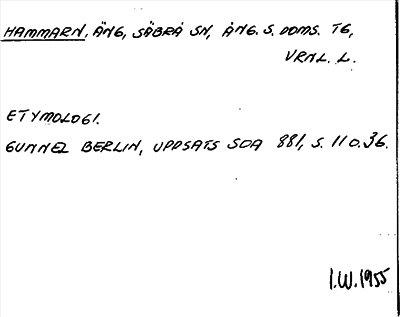 HAMMARN, ÄNG, SÄBRÅ SN, ÅNG. S. DOMS. TG,
VRNL. L.
ETYMOLOGI.
GUNNEL BERLIN, UPPSATS SOA 881, S. 11 O. 36.
I.W. 1955